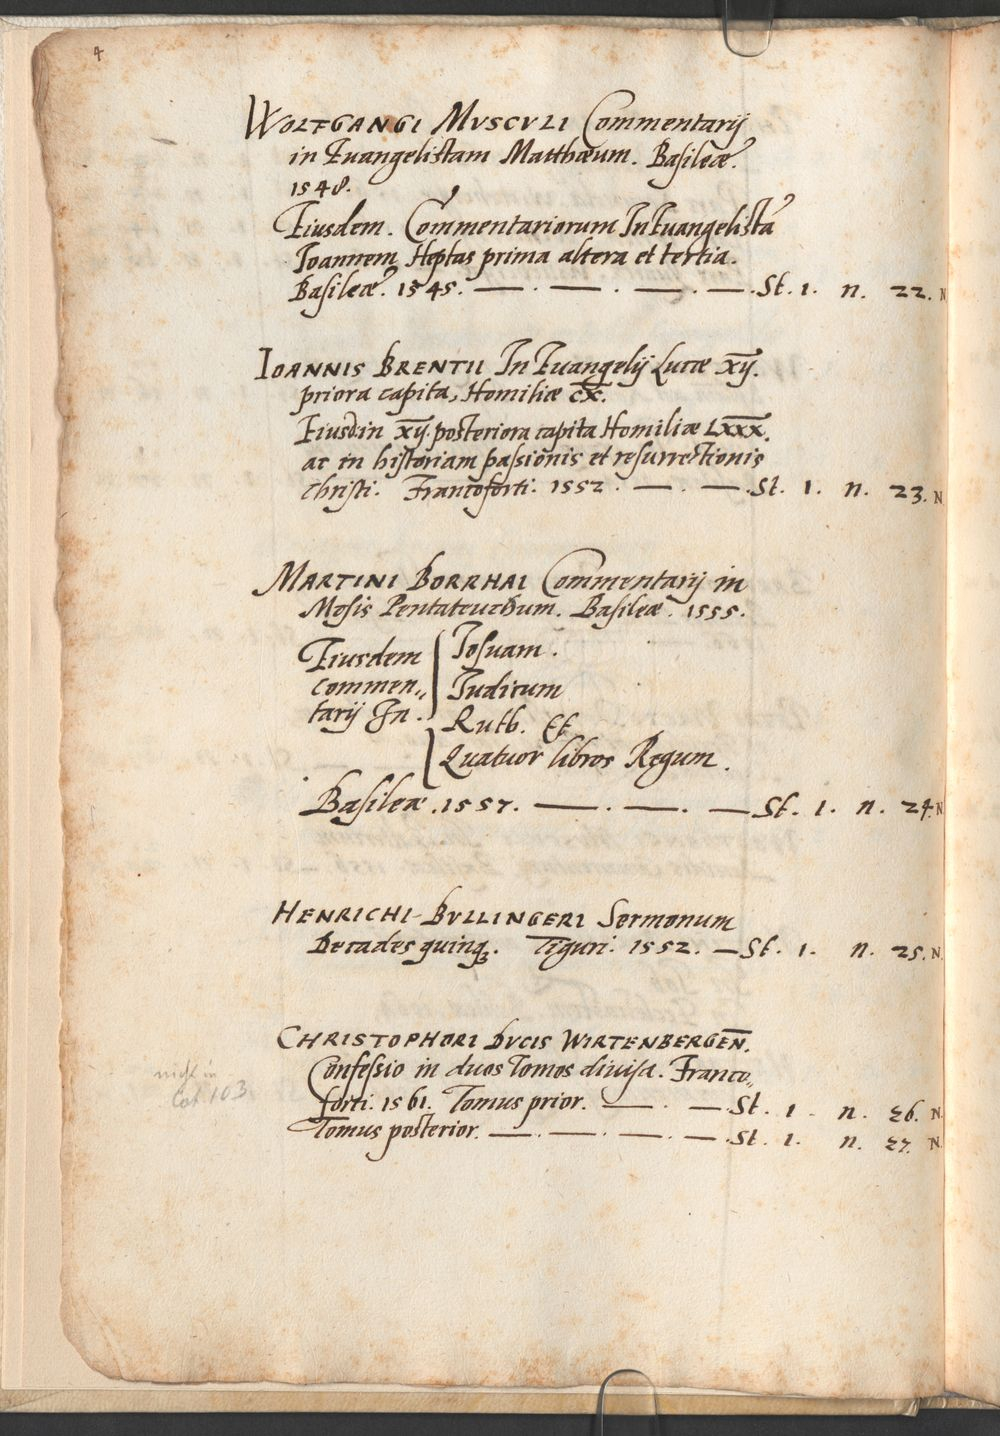 4
WOLFGANGI MVSCVLI Commentarij
in Euangelistam Matthæum. Basileæ.
1548.
Eiusdem. Commentariorum In Euangelistā
Ioannem Heptas prima altera et tertia.
Basileæ. 1545. — . — . — . — . St. 1. n. 22. N
IOANNIS BRENTII In Euangelij Lucæ xij.
priora capita, Homiliæ cx.
Eiusd in xij. posteriora capita Homiliæ Lxxx.
ac in historiam passionis et resurrectionis
Christi. Francoforti. 1552. — . — . St. 1. n. 23. N
MARTINI BORRHAI Commentarij in
Mosis Pentateuchum. Basileæ. 1555.
Eiusdem Iosuam.
commen„ Iudicum
tarij In. Ruth. Et
Quatuor libros Regum.
Basileæ. 1557. — . — . — St. 1. n. 24. N
HENRICHI BVLLINGERI Sermonum
Decades quinq3. Tiguri. 1552. — St. 1. n. 25. N
CHRISTOPHORI DVCIS WIRTENBERGEN̄.
Confessio in duos Tomos diuisa. Franco„
nicht in
Cat 103
forti. 1561. Tomus prior. — . — St. 1. n. 26. N.
Tomus posterior. — . — . — . — . St. 1. n. 27. N.